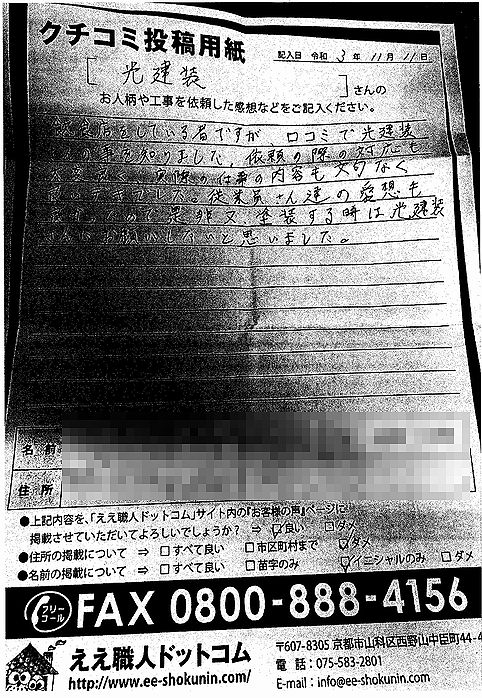 クチコミ投稿用紙
記入日 令和 3年 11月 11日
[光建装]さんの
お人柄や工事を依頼した感想などをご記入ください。
をしている者ですが、口コミで光建装
事を知りました。依頼の際の対応も
実際の仕事の内容も文句なく
でした。従業員さん達の愛想も
是非又塗装する時は光建装
お願いしたいと思いました。
名前
住所
●上記内容を、「ええ職人ドットコム」サイト内の『お客様の声』ページに
掲載させていただいてよろしいでしょうか? ⇒ ☑良い □ダメ
●住所の掲載について ⇒ □すべて良い □市区町村まで ☑ダメ
●名前の掲載について ⇒ □すべて良い □苗字のみ ☑イニシャルのみ □ダメ
フリーコール FAX 0800-888-4156
ええ職人ドットコム
http://www.ee-shokunin.com/
〒607-8305 京都市山科区西野山中臣町44-4
電話:075-583-2801
E-mail:info@ee-shokunin.com